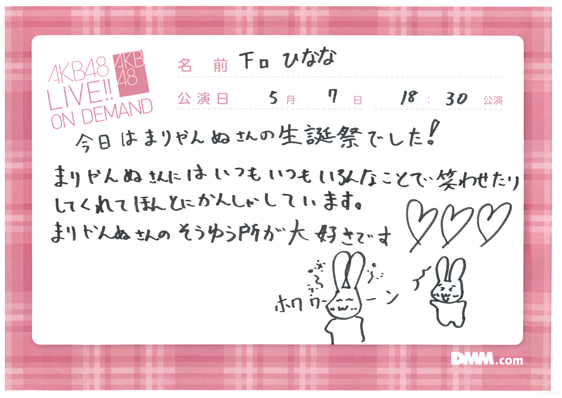 AKB48
LIVE!!
ON DEMAND
AKB
48
名 前 下口 ひなな
公演日 5月 7日 18:30 公演
今日はまりやんぬさんの生誕祭でした!
まりやんぬさんにはいつもいつもいろんなことで笑わせたり
してくれてほんとにかんしゃしています。
まりやんぬさんのそうゆう所が大好きです
ホワワーーン
DMM.com